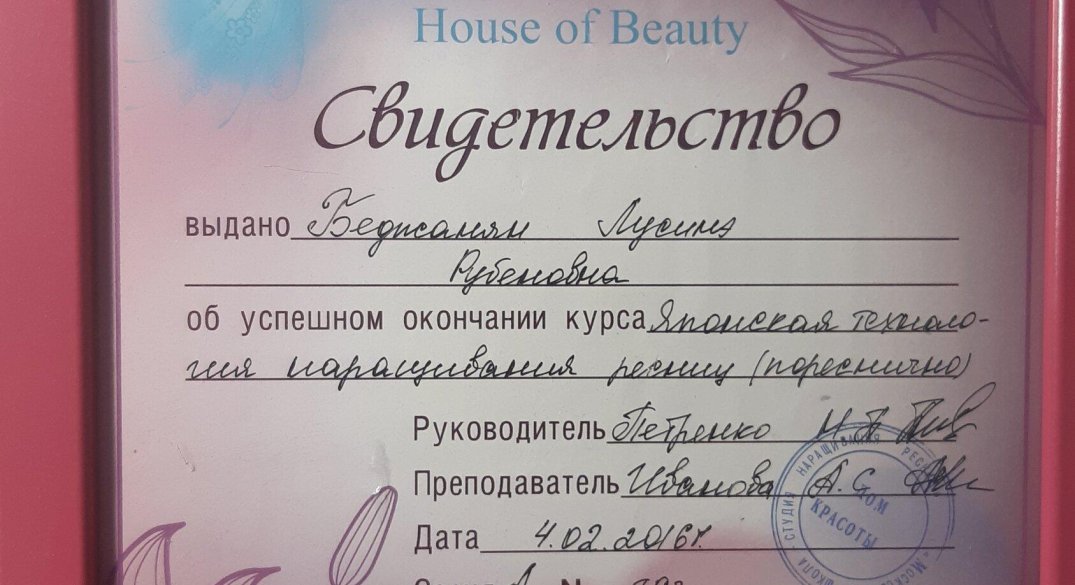 House of Beauty
Свидетельство
выдано Беджанян Лусинэ
Рубеновна
об успешном окончании курса Японская техноло-
гия наращивания ресниц (пореснично)
Руководитель Петренко Н.В.
Преподаватель Иванова А.С.
Дата 4.02.2016г.
СТУДИЯ НАРАЩИВАНИЯ
ДОМ
КРАСОТЫ
ШКОЛА